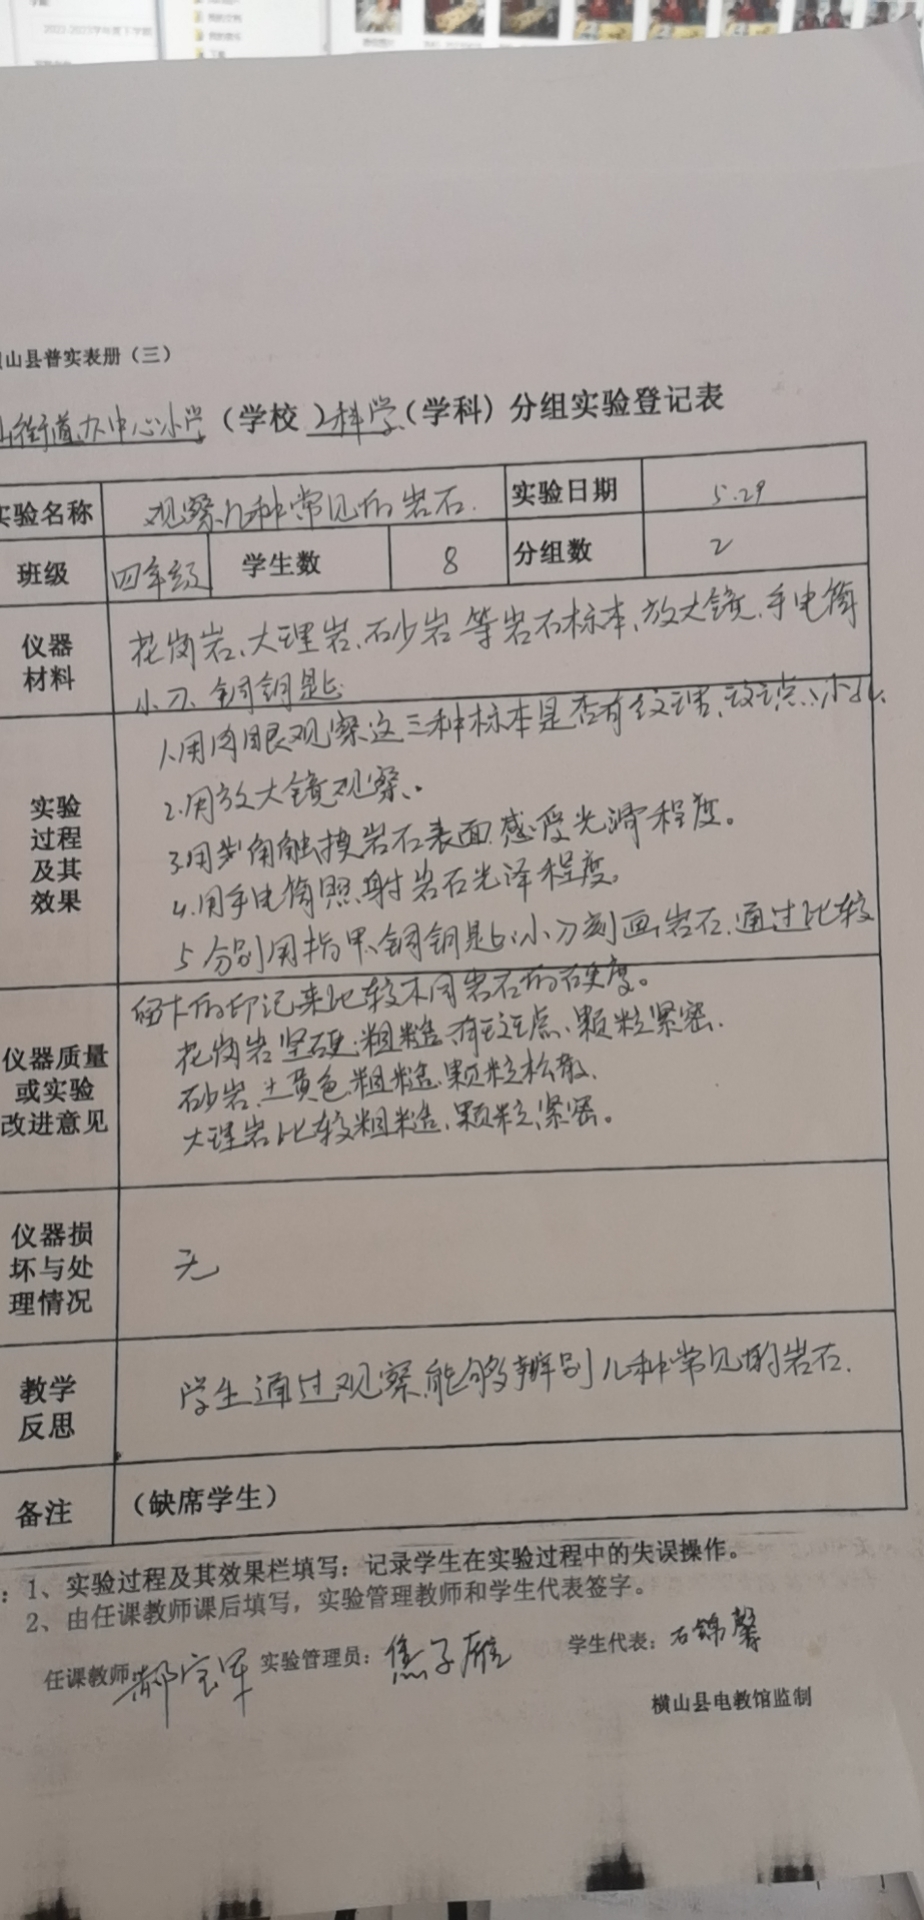 2022-2023学年度下学期
山县普实表册（三）
山街道办中心小学（学校）科学（学科）分组实验登记表
实验名称 观察几种常见的岩石. 实验日期 5.29
班级 四年级 学生数 8 分组数 2
仪器材料 花岗岩、大理岩、石砂岩等岩石标本、放大镜、手电筒
小刀、铜钥匙
实验过程及其效果 1.用肉眼观察这三种标本是否有纹理、斑点、小孔、
2.用放大镜观察。
3.用手触摸岩石表面感受光滑程度。
4.用手电筒照射岩石光泽程度。
5.分别用指甲、铜钥匙、小刀刻画岩石.通过比较
留下的印记来比较不同岩石的硬度。
仪器质量或实验改进意见 花岗岩坚硬、粗糙、有斑点、颗粒紧密.
砂岩、土黄色、粗糙、颗粒松散、
大理岩比较粗糙、颗粒紧密。
仪器损坏与处理情况 无
教学反思 学生通过观察,能够辨别几种常见的岩石.
备注 （缺席学生）
：1、实验过程及其效果栏填写：记录学生在实验过程中的失误操作。
2、由任课教师课后填写，实验管理教师和学生代表签字。
任课教师 郝宝军 实验管理员：焦子雁 学生代表：石锦馨
横山县电教馆监制